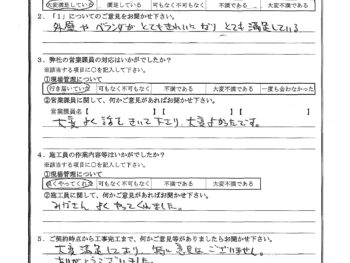 大変満足している 満足している 可もなく不可もなく 不満である 大変不満である
2．「1」についてのご意見をお聞かせ下さい。
外壁やベランダがとてもきれいになり とても満足している
3．弊社の営業課員の対応はいかがでしたか？
※該当する項目に○を記入して下さい。
①現場管理について
行き届いていた 満足している 可もなく不可もなく 不満である 大変不満である 一度も会わなかった
②営業課員に関して、何かご意見があればお聞かせ下さい。
営業課員名【 】【 】【 】
大変よく話をきいて下さり、大変よかったです。
4．施工員の作業内容等はいかがでしたか？
※該当する項目に○を記入して下さい。
①現場管理について
良くやってくれた 可もなく不可もなく 不満である 大変不満である
②施工員に関して、何かご意見があればお聞かせ下さい
みなさん よくやってくれました。
5．ご契約時点から工事完工まで、何かご意見等がありましたらお聞かせ下さい。
大変満足しており、特に意見はございません。
ありがとうございました。